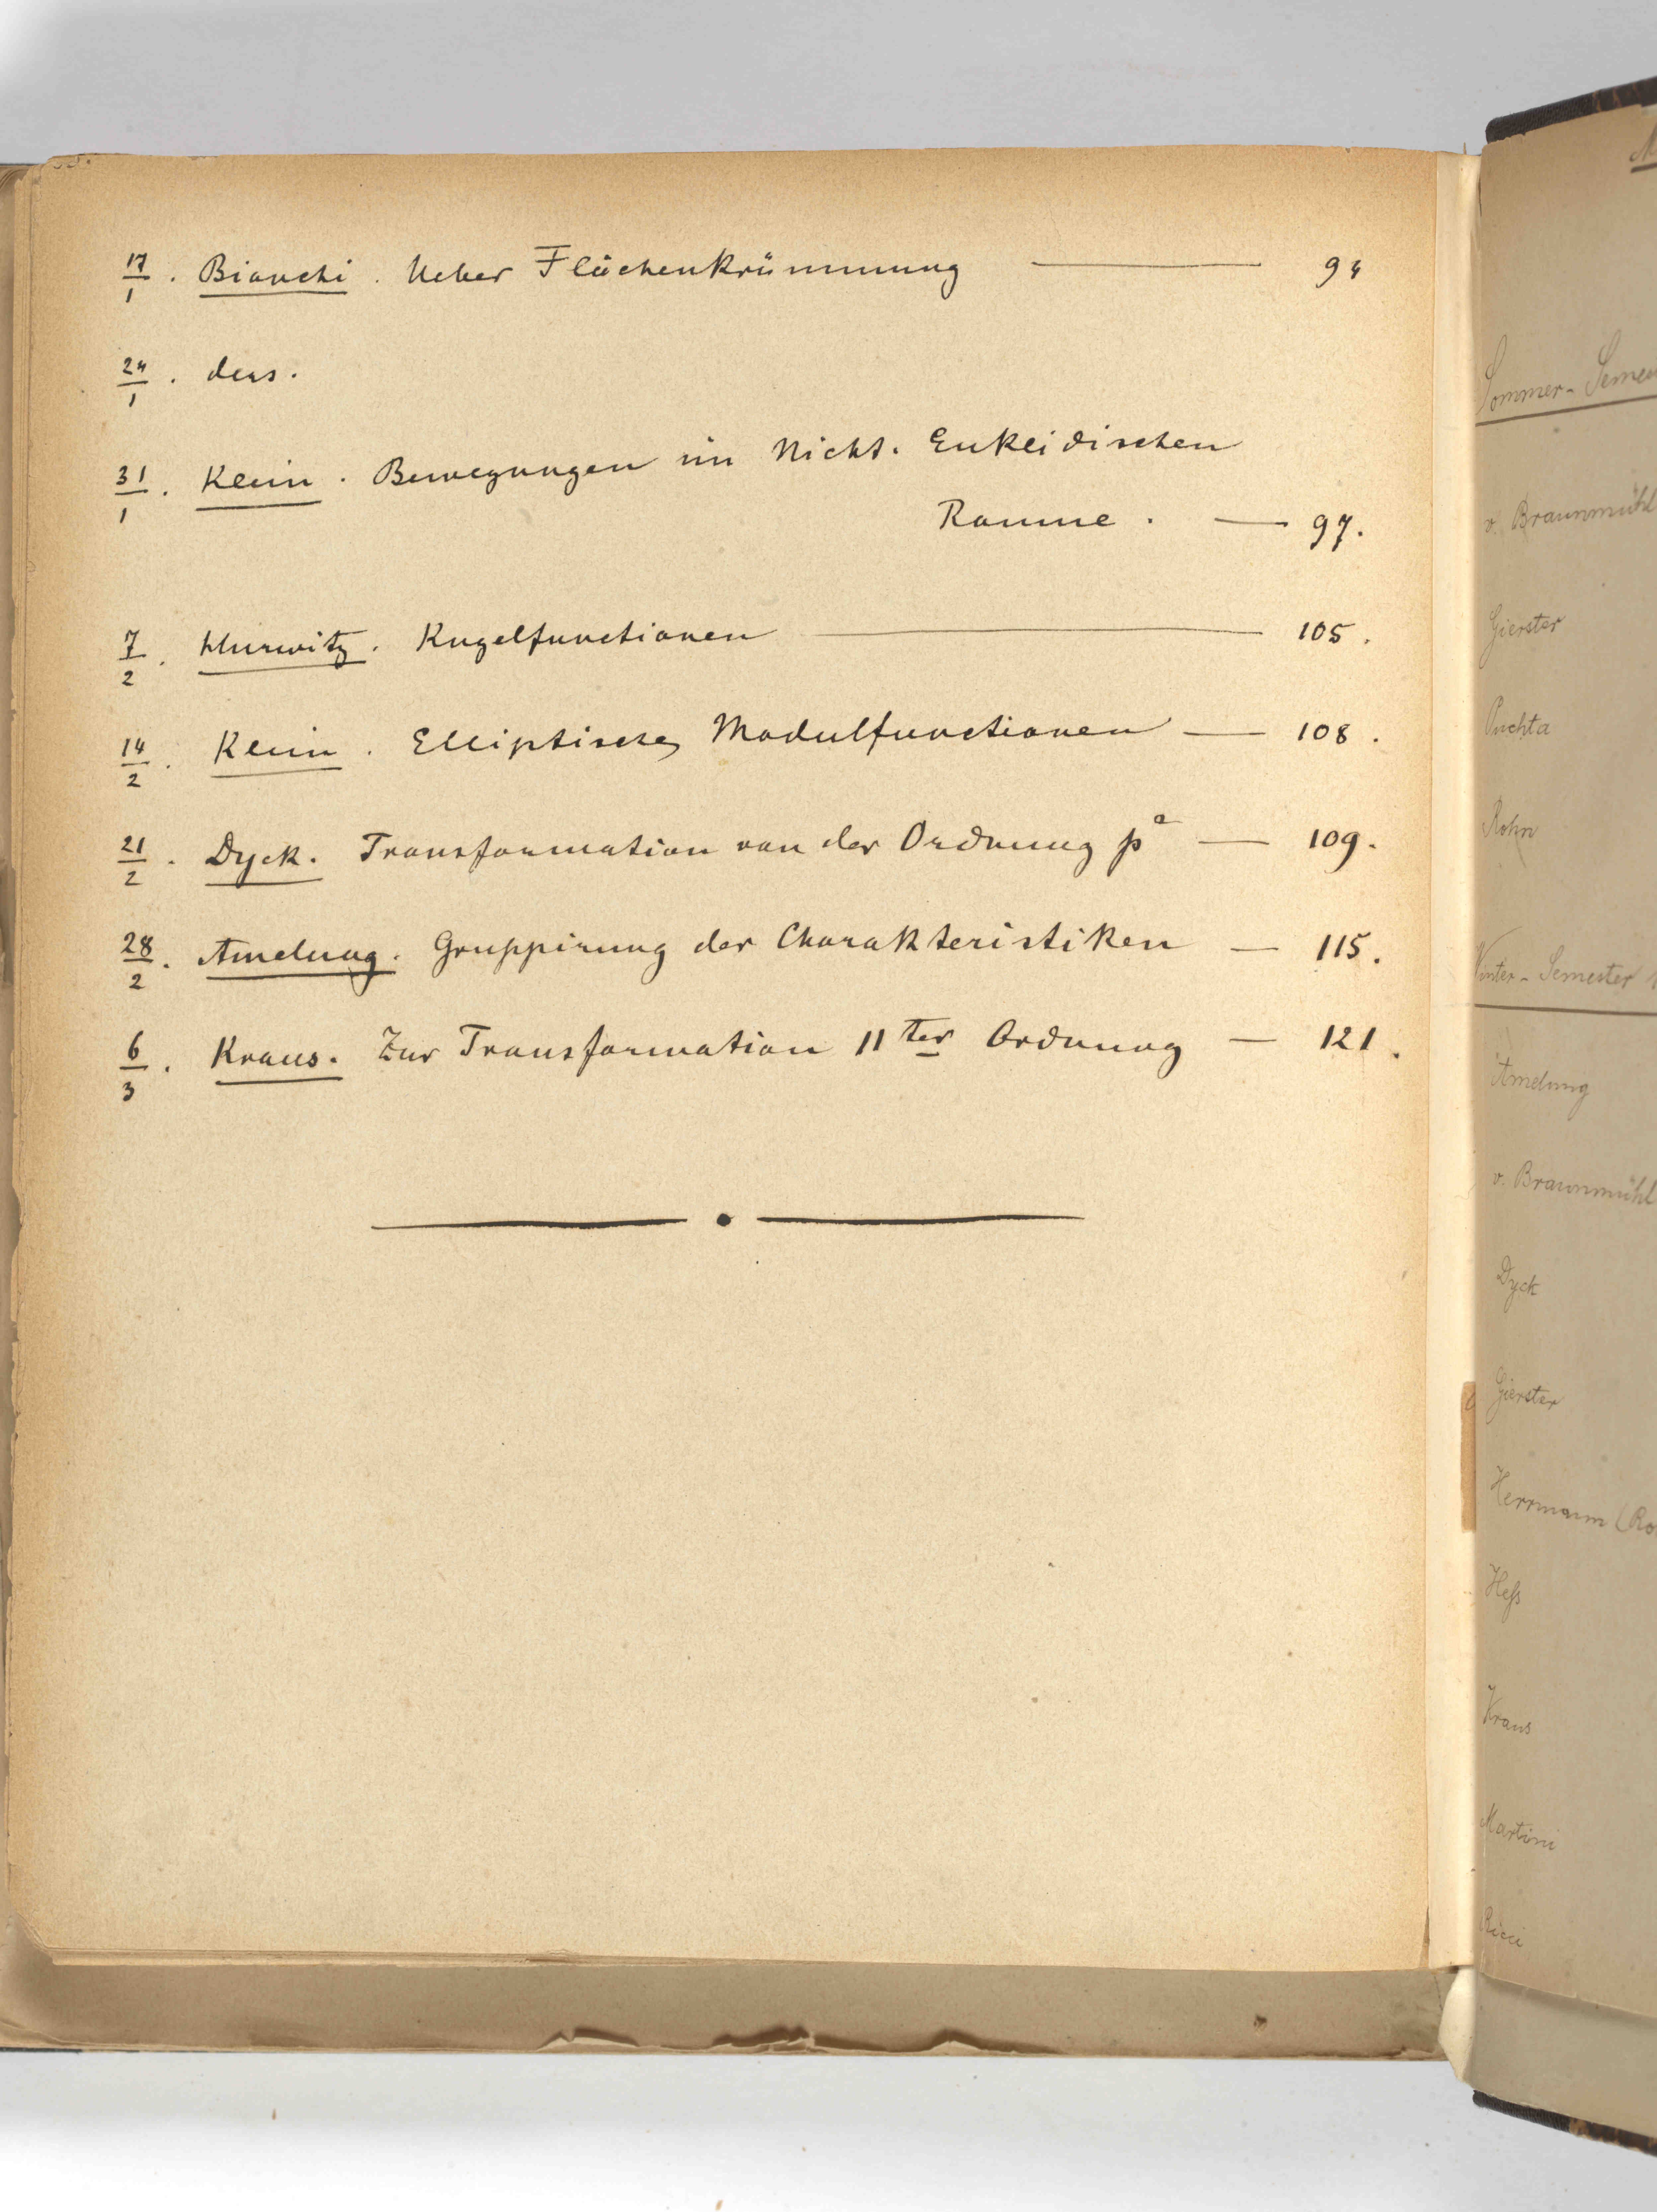 17/1. Bianchi. Ueber Flächenkrümmung — 94
24/1. ders.
31/1. Klein. Bewegungen im Nicht-Eukleidischen
Raume. — 97.
7/2. Hurwitz. Kugelfunctionen — 105.
14/2. Klein. Elliptische Modulfunctionen — 108.
21/2. Dyck. Transformation von der Ordnung p^a — 109.
28/2. Amelung. Gruppirung der Charakteristiken — 115.
6/3. Kraus. Zur Transformation 11ter Ordnung — 121.
Sommer-
v. Braunmühl
Gierster
Puchta
Rohn
Winter-Semester
Amelung
v. Braunmühl
Dyck
Gierster
Herrmann (Ro
Heß
Kraus
Martini
Ricci